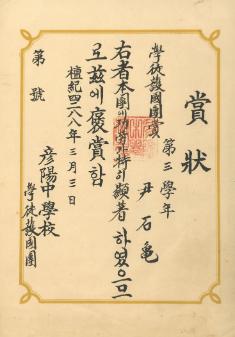 賞狀
學徒護國團賞
第三學年
尹石亀
右者本團에功勞가特히顯著하였으므
로玆에褒賞함
檀紀四二八八年三月三日
彦陽中學校
學徒護國團
第 號